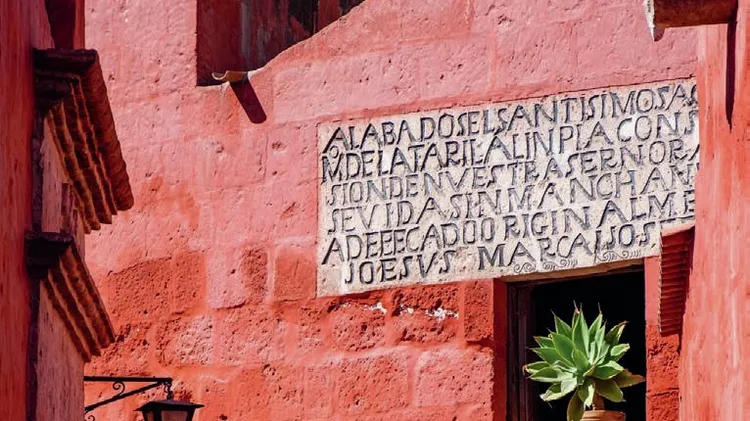 ALABADOSELSANTISIMOSA
MDELATARILALINPIACONS
SIONDENVESTRASERNORA
SEVIDASINMANCHAN
ADEEECADOORIGINALME
JOESVS MARCAIJOS